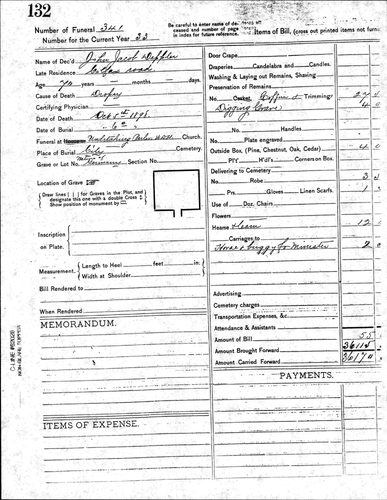 132
Number of Funeral 341
Number for the Current Year 33
Be careful to enter name of deceased and number of page in index for future reference.
Items of Bill, (cross out printed items not furn
Name of Dec'd John Jacob
Late Residence road
Age 70 years months days.
Cause of Death Dropsy
Certifying Physician
Date of Death Oct 5th 1898
Date of Burial " 6th "
Funeral at Church.
Place of Burial City Cemetery.
Grave or Lot No. Section No.
Location of Grave
Draw lines ( ) for Graves in the Plot, and
designate this one with a double Cross
Show position of monument by
Inscription
on Plate.
Measurement. Length to Heel feet in.
Width at Shoulder
Bill Rendered
When Rendered
MEMORANDUM.
ITEMS OF EXPENSE.
Door Crape
Draperies Candelabra and Candles.
Washing & Laying out Remains, Shaving
Preservation of Remains
No Casket Coffin & Trimmings 27
Digging Grave 4
No. Handles
Plate engraved
Outside Box, (Pine, Chestnut, Oak, Cedar) 4
PlY H'd'l's Corners on Box.
Delivering to Cemetery
No. Robe 3
Prs. Gloves Linen Scarfs 1
Use of Doz. Chairs
Flowers
Hearse 12
Carriages to
Horse & buggy for Minister 2
Advertising
Cemetery charges
Transportation Expenses, &c.
Attendance & Assistants
Amount of Bill 55
Amount Brought Forward 36115
Amount Carried Forward 36170
PAYMENTS.
C-LINE #52026
NON-GLARE, TOPPER